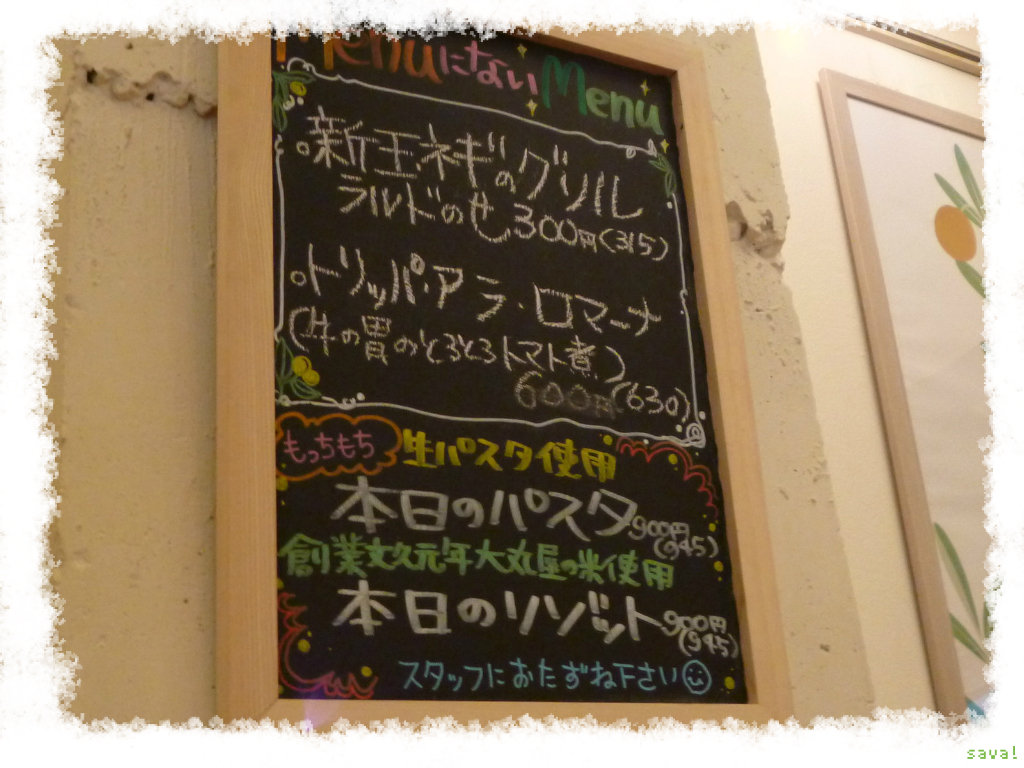 MenuにないMenu
・新玉ネギのグリル
ラルドのせ 300円(315)
・トリッパ・アラ・ロマーナ
(牛の胃のとろとろトマト煮)
600円(630)
もっちもち 生パスタ使用
本日のパスタ 900円(945)
創業文久元年大丸屋の米使用
本日のリゾット 900円(945)
スタッフにおたずね下さい
sava!